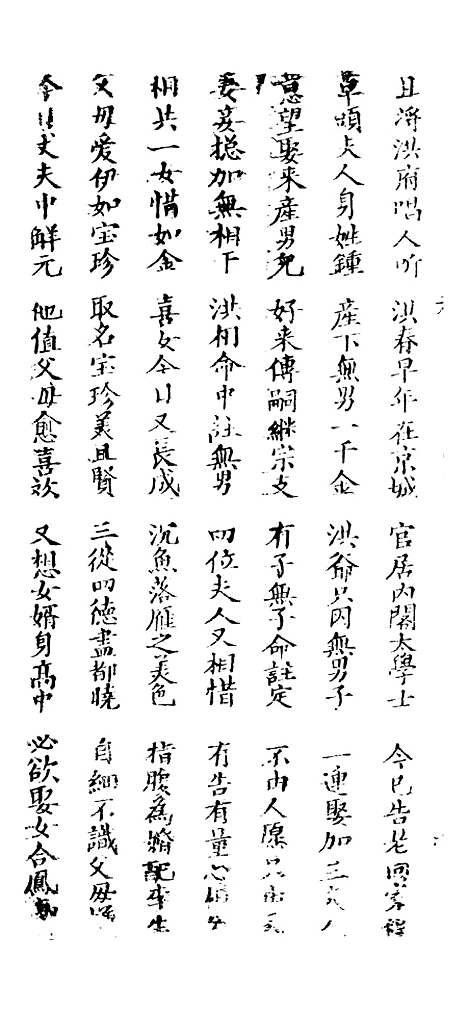 且將洪府唱人听 洪春早年在京城 官居内閣太學士 今已告老回家
頭夫人身姓鍾 産下無男一千金 洪爺只因無男子 一連娶加三夫人
意望娶来産男兒 好来傳嗣継宗支 有子無子命註定 不由人愿只由
妻妾揔加無相下 洪相命中註無男 四位夫人又相惜 有告有量心
相共一女惜如金 喜女今日又長成 沉魚落雁之美色 指腹為婚配李生
父母愛伊如宝珍 取名宝珍美且賢 三從四德盡都曉 自細不識父母
今日丈夫中解元 他值父母愈喜欢 又想女婿身高中 必欲娶女合鳳